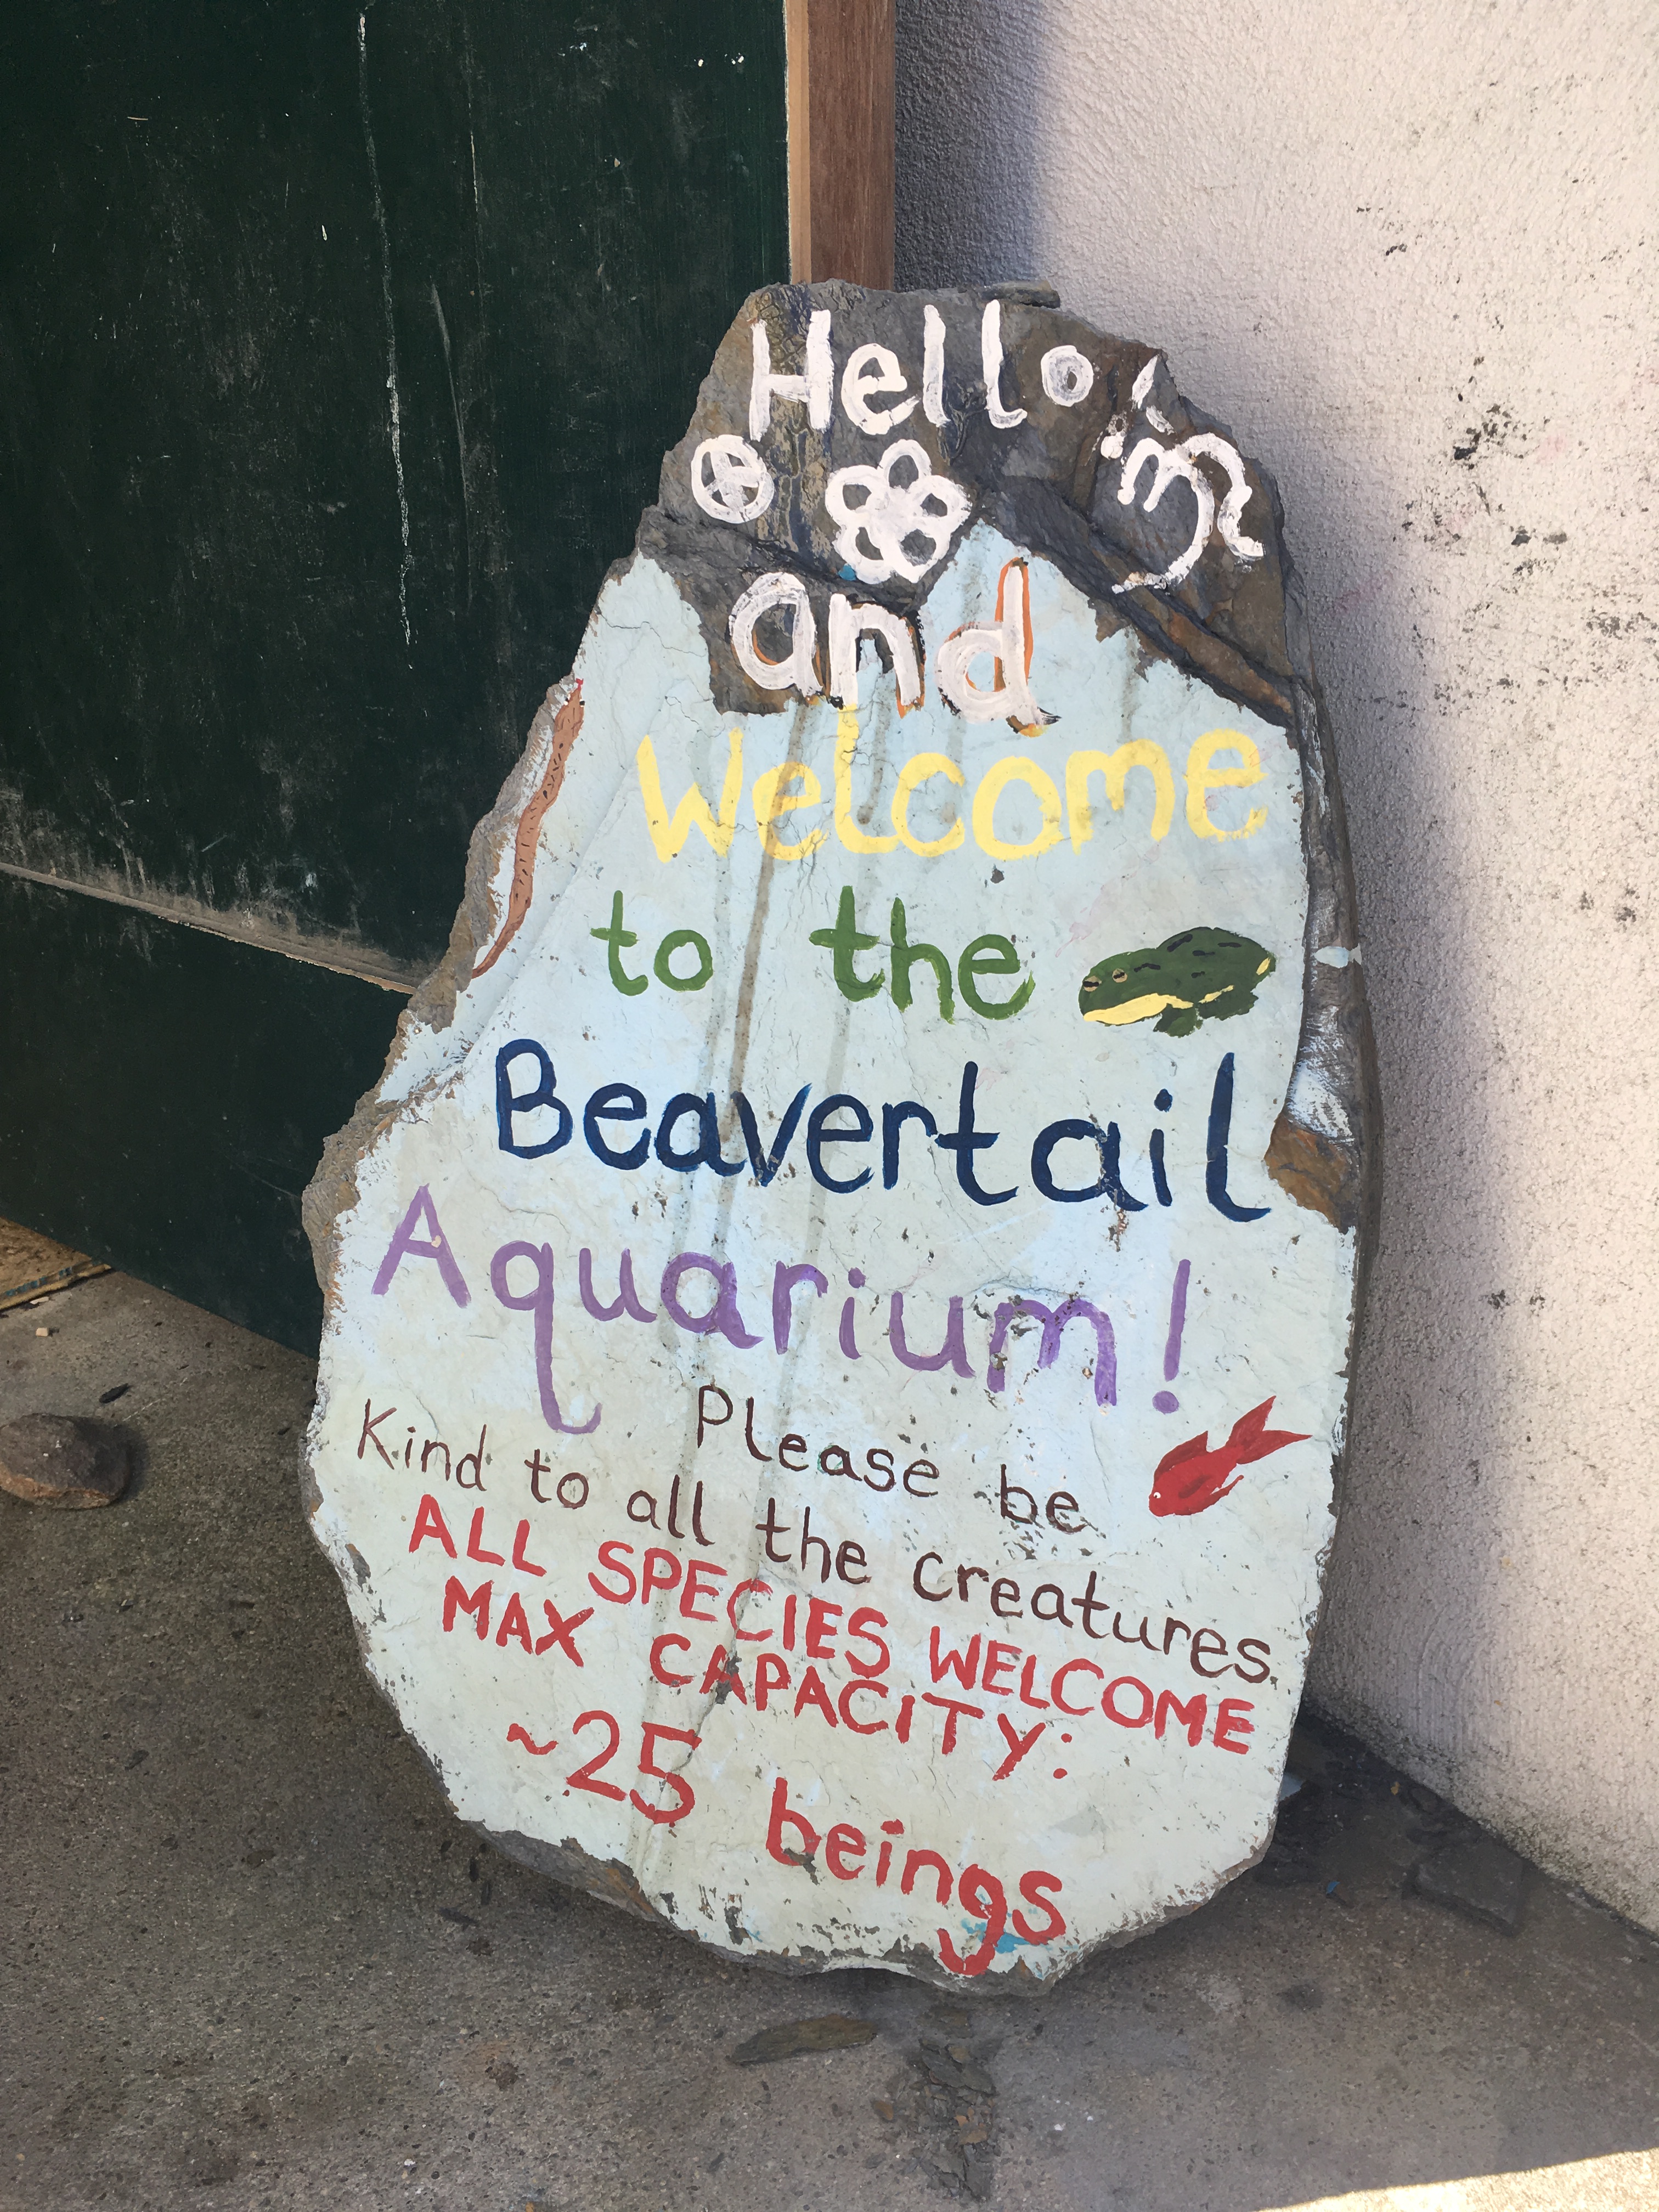 Hello
and
Welcome
to the
Beavertail
Aquarium!
Please be
Kind to all the creatures
ALL SPECIES WELCOME
MAX CAPACITY:
~25 beings